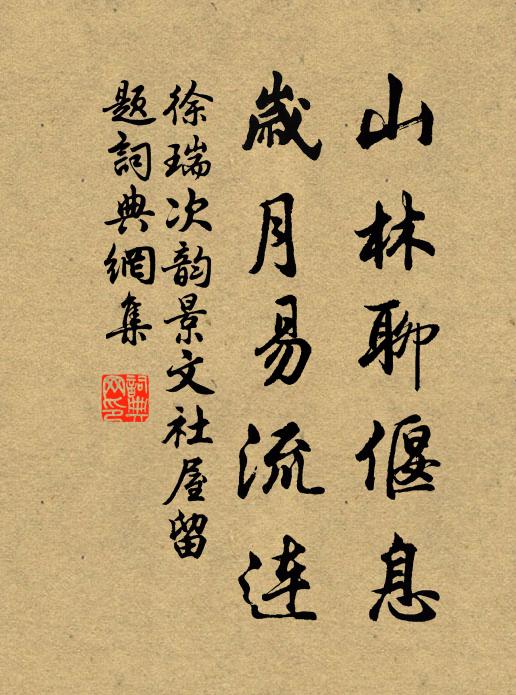 山林聊偃息
歲月易流連
徐瑞次韵景文社屋留
題詞典網集
詞典
网印